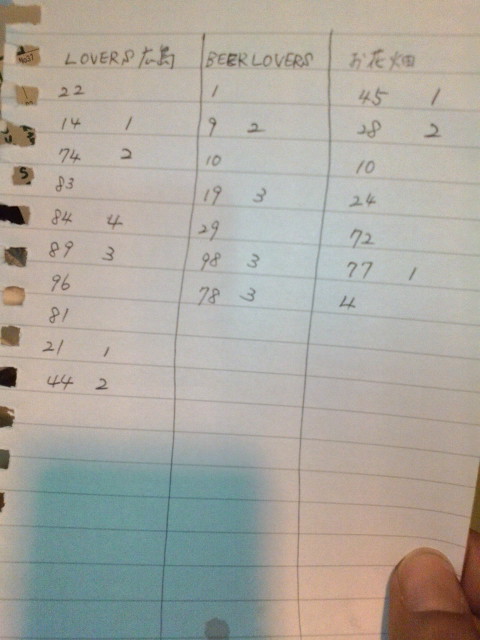 LOVERS広島 BEERLOVERS お花畑
22 1 45 1
14 1 9 2 28 2
74 2 10 10
83 19 3 24
84 4 29 72
89 3 98 3 77 1
96 78 3 4
81
21 1
44 2